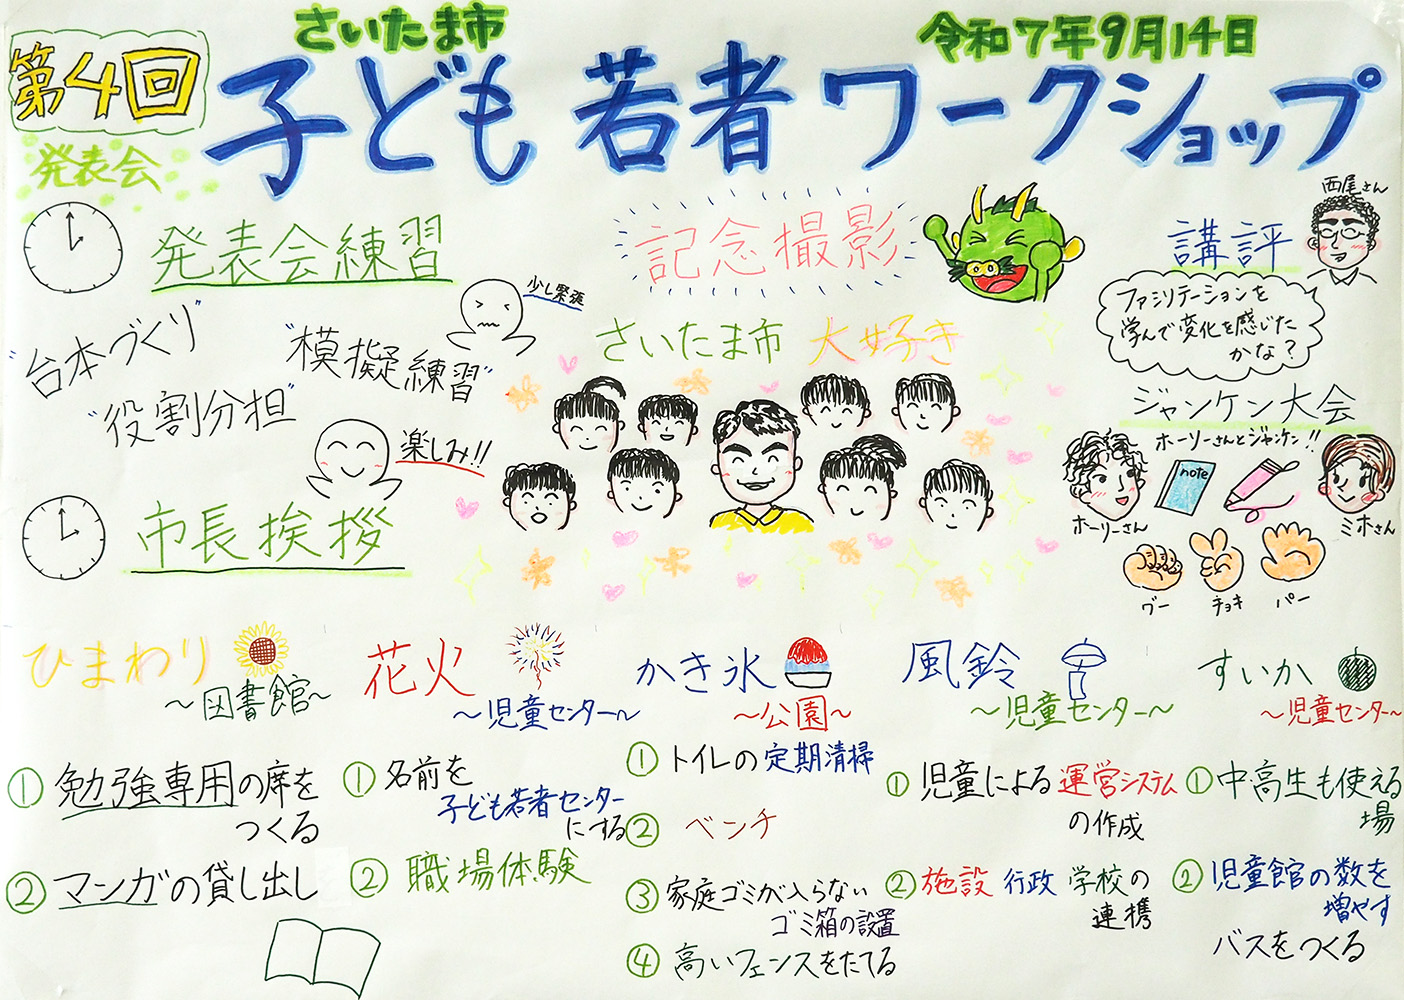 さいたま市
令和7年9月14日
第4回
子ども若者ワークショップ
発表会
発表会練習
少し緊張
"台本づくり"
"模擬練習"
"役割分担"
楽しみ!!
市長挨拶
記念撮影
さいたま市 大好き
西尾さん
講評
ファシリテーションを
学んで変化を感じた
かな?
ジャンケン大会
ホーリーさんとジャンケン!!
note
ホーリーさん
ミホさん
グー
チョキ
パー
ひまわり
〜図書館〜
① 勉強専用の席を
つくる
② マンガの貸し出し
花火
〜児童センター〜
① 名前を
子ども若者センター
にする
② 職場体験
かき氷
〜公園〜
① トイレの定期清掃
② ベンチ
③ 家庭ゴミが入らない
ゴミ箱の設置
④ 高いフェンスをたてる
風鈴
〜児童センター〜
① 児童による運営システム
の作成
② 施設 行政 学校の
連携
すいか
〜児童センター〜
① 中高生も使える
場
② 児童館の数を
増やす
バスをつくる